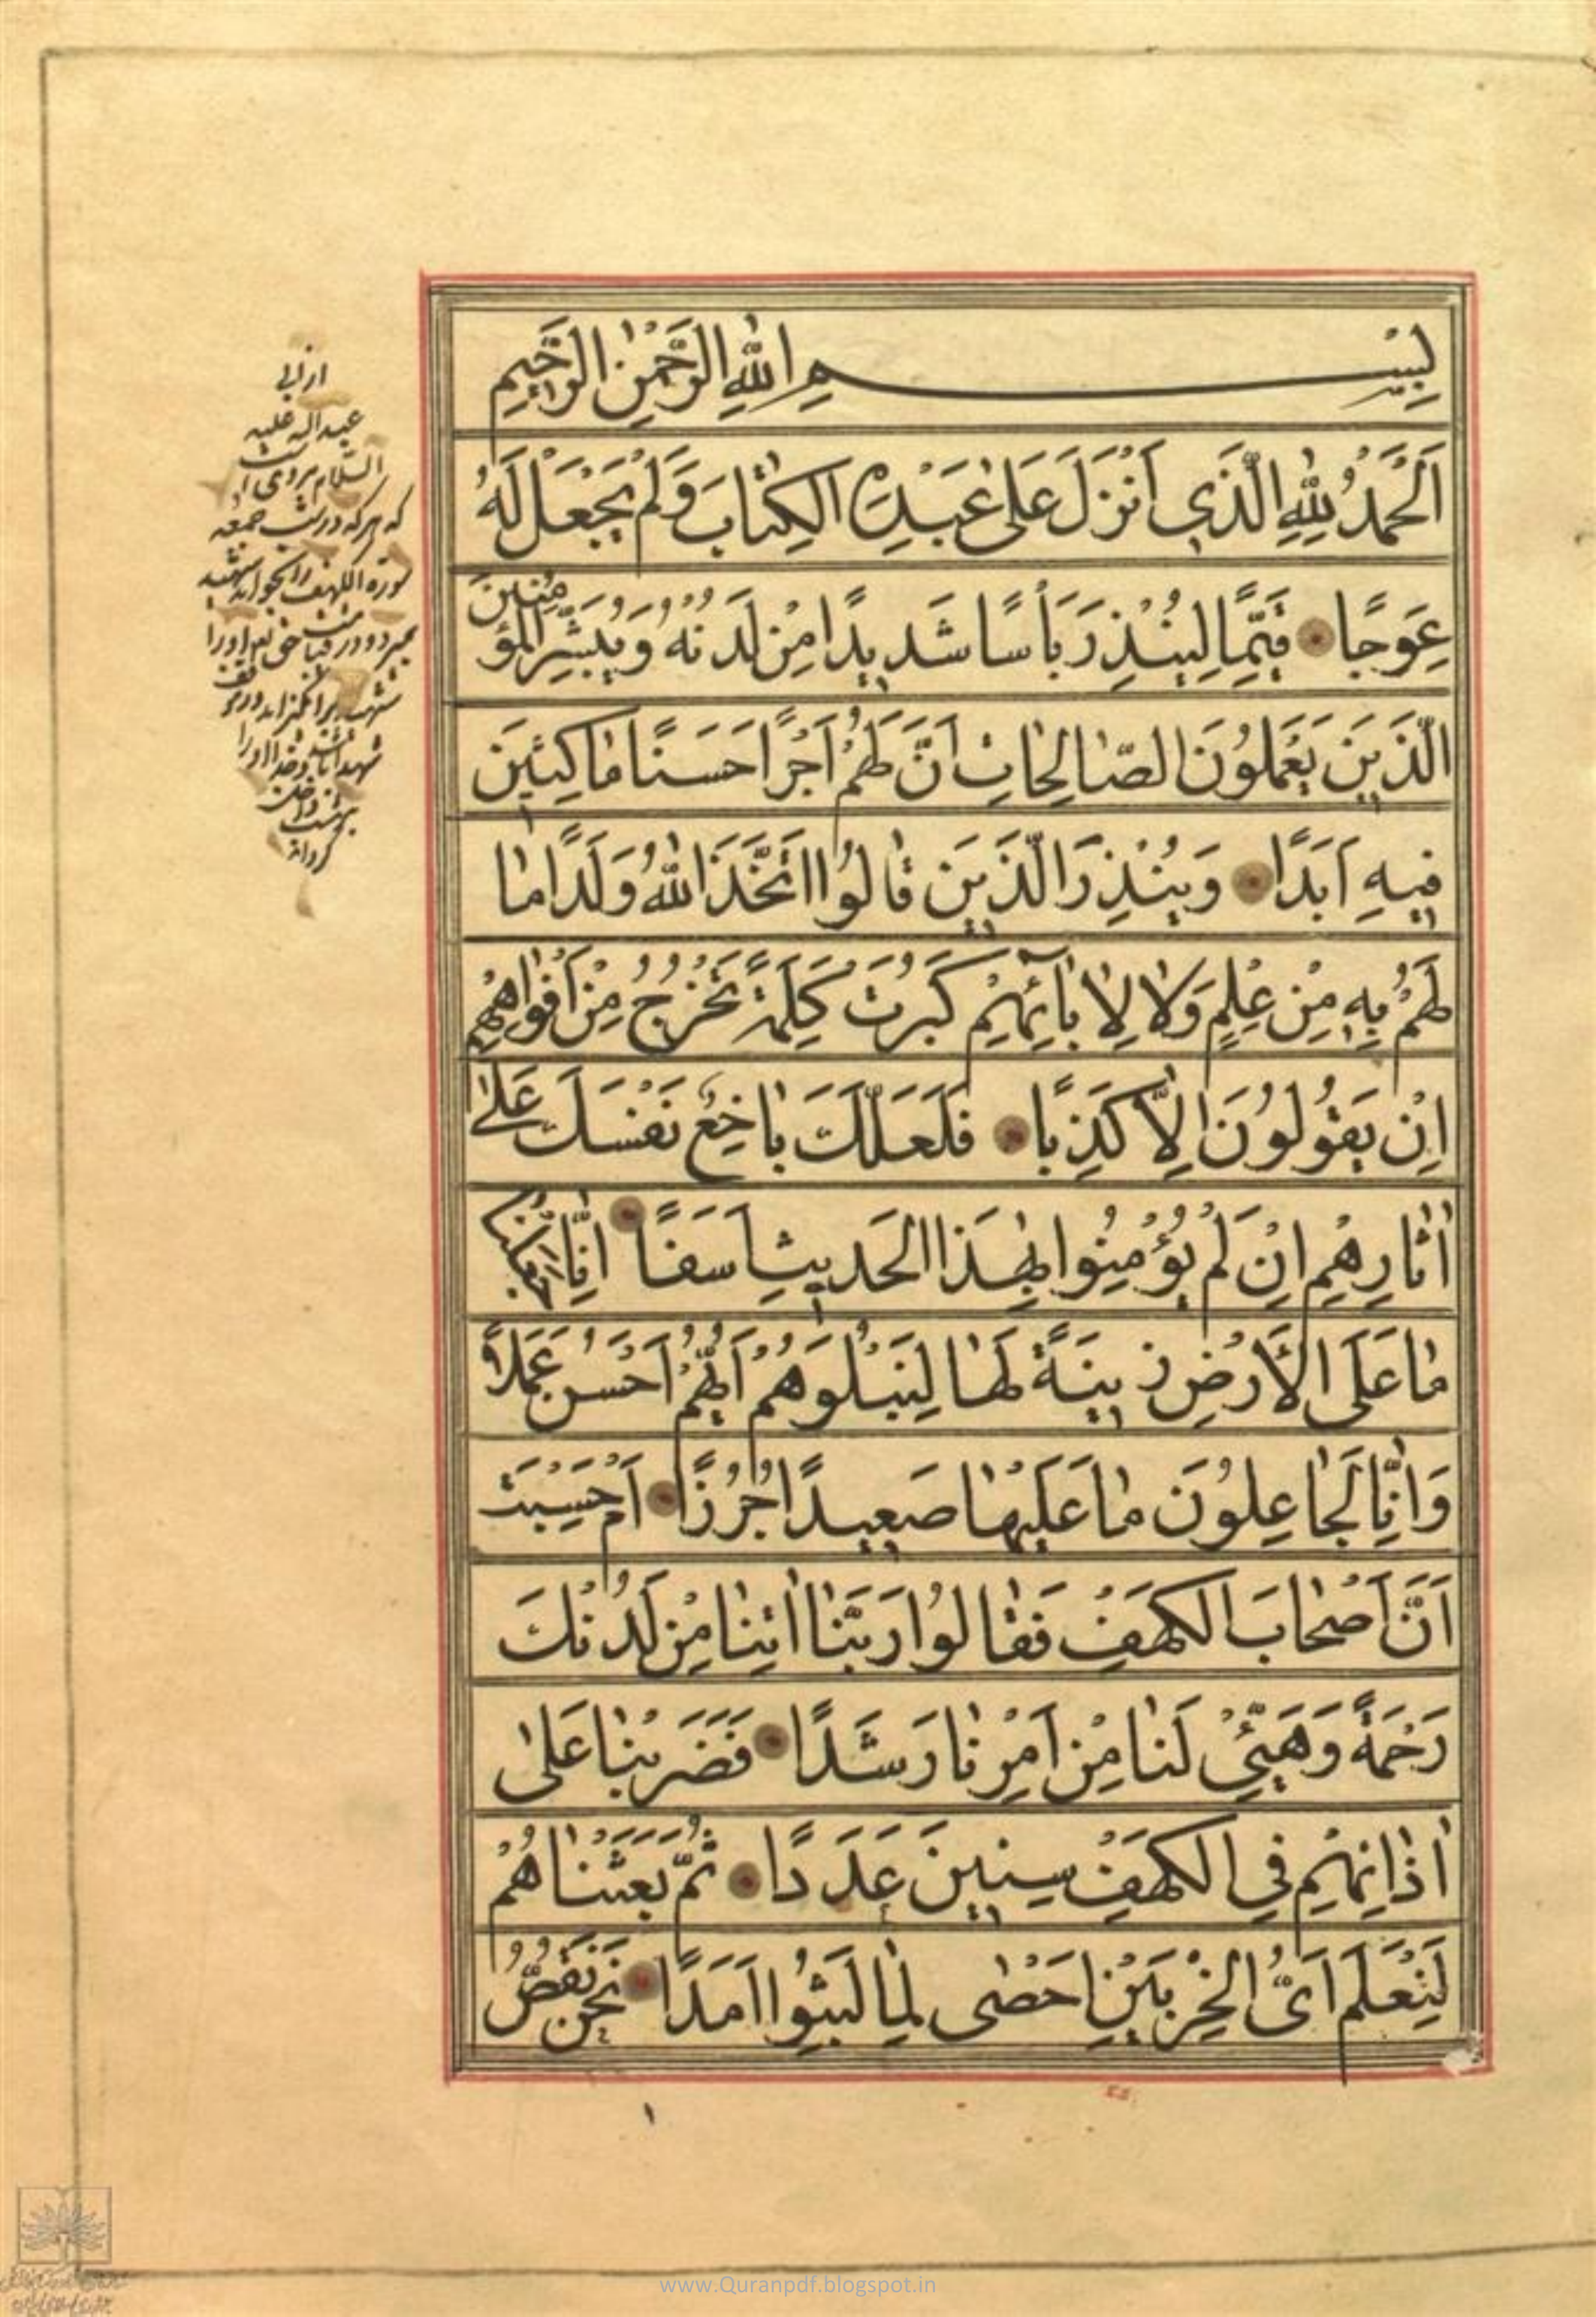 بِسْمِ اللّٰهِ الرَّحْمٰنِ الرَّحيمِ
اَلْحَمْدُ لِلّٰهِ الَّذي اَنْزَلَ عَلىٰ عَبْدِهِ الكِتٰابَ وَلَمْ يَجْعَلْ لَهُ
عِوَجًا قَيِّمًا لِيُنْذِرَ بَأْسًا شَديدًا مِنْ لَدُنْهُ وَيُبَشِّرَ المُؤْمِنينَ
الَّذينَ يَعْمَلُونَ الصّٰالِحٰاتِ اَنَّ لَهُمْ اَجْرًا حَسَنًا مٰاكِثينَ
فيهِ اَبَدًا وَيُنْذِرَ الَّذينَ قٰالُوا اتَّخَذَ اللّٰهُ وَلَدًا مٰا
لَهُمْ بِهِ مِنْ عِلْمٍ وَلاٰ لِاٰبٰائِهِمْ كَبُرَتْ كَلِمَةً تَخْرُجُ مِنْ اَفْوٰاهِهِمْ
اِنْ يَقُولُونَ اِلاّٰ كَذِبًا فَلَعَلَّكَ بٰاخِعٌ نَفْسَكَ عَلىٰ
اٰثٰارِهِمْ اِنْ لَمْ يُؤْمِنُوا بِهٰذَا الحَديثِ اَسَفًا اِنّٰا جَعَلْنٰا
مٰا عَلَى الْأَرْضِ زينَةً لَهٰا لِنَبْلُوَهُمْ اَيُّهُمْ اَحْسَنُ عَمَلًا
وَاِنّٰا لَجٰاعِلُونَ مٰا عَلَيْهٰا صَعيدًا جُرُزًا اَمْ حَسِبْتَ
اَنَّ اَصْحٰابَ الكَهَفِ فَقٰالُوا رَبَّنٰا اٰتِنٰا مِنْ لَدُنْكَ
رَحْمَةً وَهَيِّئْ لَنٰا مِنْ اَمْرِنٰا رَشَدًا فَضَرَبْنٰا عَلىٰ
اٰذٰانِهِمْ فِي الكَهَفِ سِنينَ عَدَدًا ثُمَّ بَعَثْنٰاهُمْ
لِنَعْلَمَ اَيُّ الحِزْبَيْنِ اَحْصٰى لِمٰا لَبِثُوا اَمَدًا نَحْنُ نَقُصُّ
از ابی
عبداله علیه
السّلام مرویست
که هر که در شب جمعه
سوره الکهف را بخواند شهید
بمیرد و در قیامت حق تعالی اورا
شهید برانگیزاند و در موقف
شهدا باشد و خدا اورا
بهشت داخل
گرداند
www.Quranpdf.blogspot.in